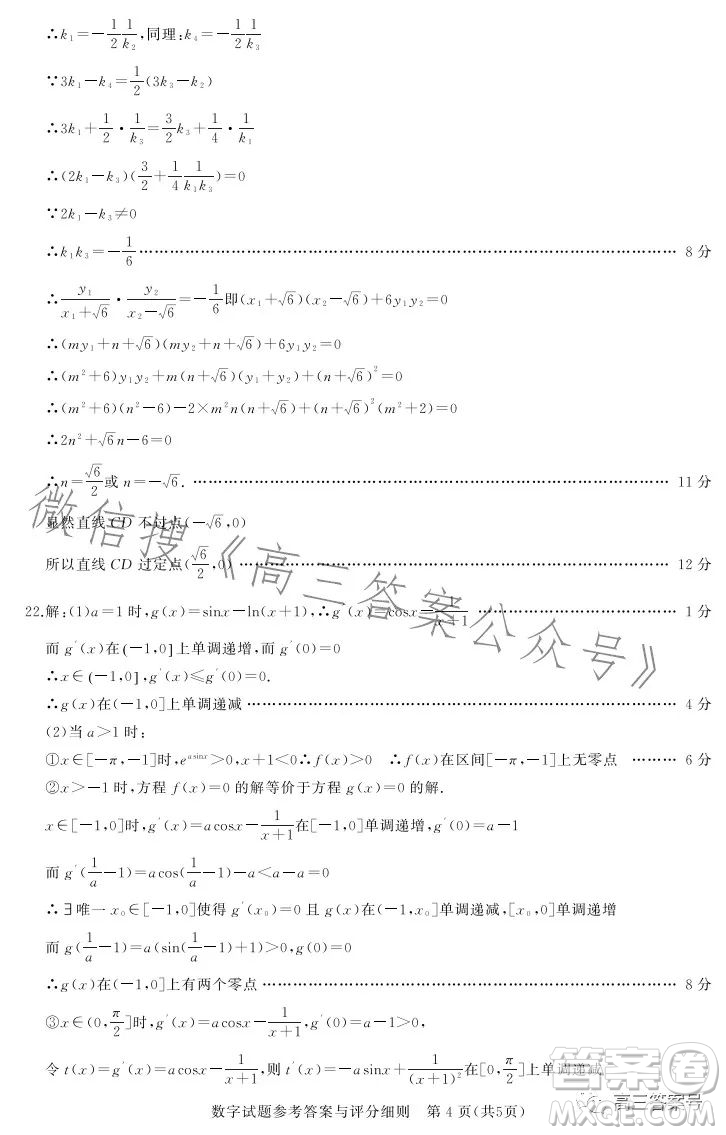 ∴k₁=-\frac{1}{2}\frac{1}{k₂},同理:k₄=-\frac{1}{2}\frac{1}{k₃}
∵3k₁-k₄=\frac{1}{2}(3k₃-k₂)
∴3k₁+\frac{1}{2}·\frac{1}{k₃}=\frac{3}{2}k₃+\frac{1}{4}·\frac{1}{k₁}
∴(2k₁-k₃)(\frac{3}{2}+\frac{1}{4}\frac{1}{k₁k₃})=0
∵2k₁-k₃≠0
∴k₁k₃=-\frac{1}{6}………… 8 分
∴\frac{y₁}{x₁+√6}·\frac{y₂}{x₂-√6}=-\frac{1}{6}即(x₁+√6)(x₂-√6)+6y₁y₂=0
∴(my₁+n+√6)(my₂+n+√6)+6y₁y₂=0
∴(m²+6)y₁y₂+m(n+√6)(y₁+y₂)+(n+√6)²=0
∴(m²+6)(n²-6)-2×m²n(n+√6)+(n+√6)²(m²+2)=0
∴2n²+√6n-6=0
∴n=\frac{√6}{2}或 n=-√6. ………… 11 分
显然直线 CD 不过点(-√6,0)
所以直线 CD 过定点(\frac{√6}{2},0)………… 12 分
22.解:(1)a=1 时,g(x)=sinx-ln(x+1),∴g′(x)=cosx-\frac{1}{x+1}………… 1 分
而 g′(x)在(-1,0]上单调递增,而 g′(0)=0
∴x∈(-1,0],g′(x)≤g′(0)=0.
∴g(x)在(-1,0]上单调递减………… 4 分
(2)当 a>1 时:
①x∈[-π,-1]时,e^{asinx}>0,x+1<0∴f(x)>0 ∴f(x)在区间[-π,-1]上无零点 ……… 6 分
②x>-1 时,方程 f(x)=0 的解等价于方程 g(x)=0 的解.
x∈[-1,0]时,g′(x)=acosx-\frac{1}{x+1}在[-1,0]单调递增,g′(0)=a-1
而 g′(\frac{1}{a}-1)=acos(\frac{1}{a}-1)-a<a-a=0
∴∃唯一 x₀∈[-1,0]使得 g′(x₀)=0 且 g(x)在(-1,x₀]单调递减,[x₀,0]单调递增
而 g(\frac{1}{a}-1)=a(sin(\frac{1}{a}-1)+1)>0,g(0)=0
∴g(x)在(-1,0]上有两个零点………… 8 分
③x∈(0,\frac{π}{2}]时,g′(x)=acosx-\frac{1}{x+1},g′(0)=a-1>0,
令 t(x)=g′(x)=acosx-\frac{1}{x+1},则 t′(x)=-asinx+\frac{1}{(x+1)²}在[0,\frac{π}{2}]上单调递减
数字试题参考答案与评分细则 第 4 页(共5页)
微信搜《高三答案公众号》
答案圈
MXQE.COM
高三答案号